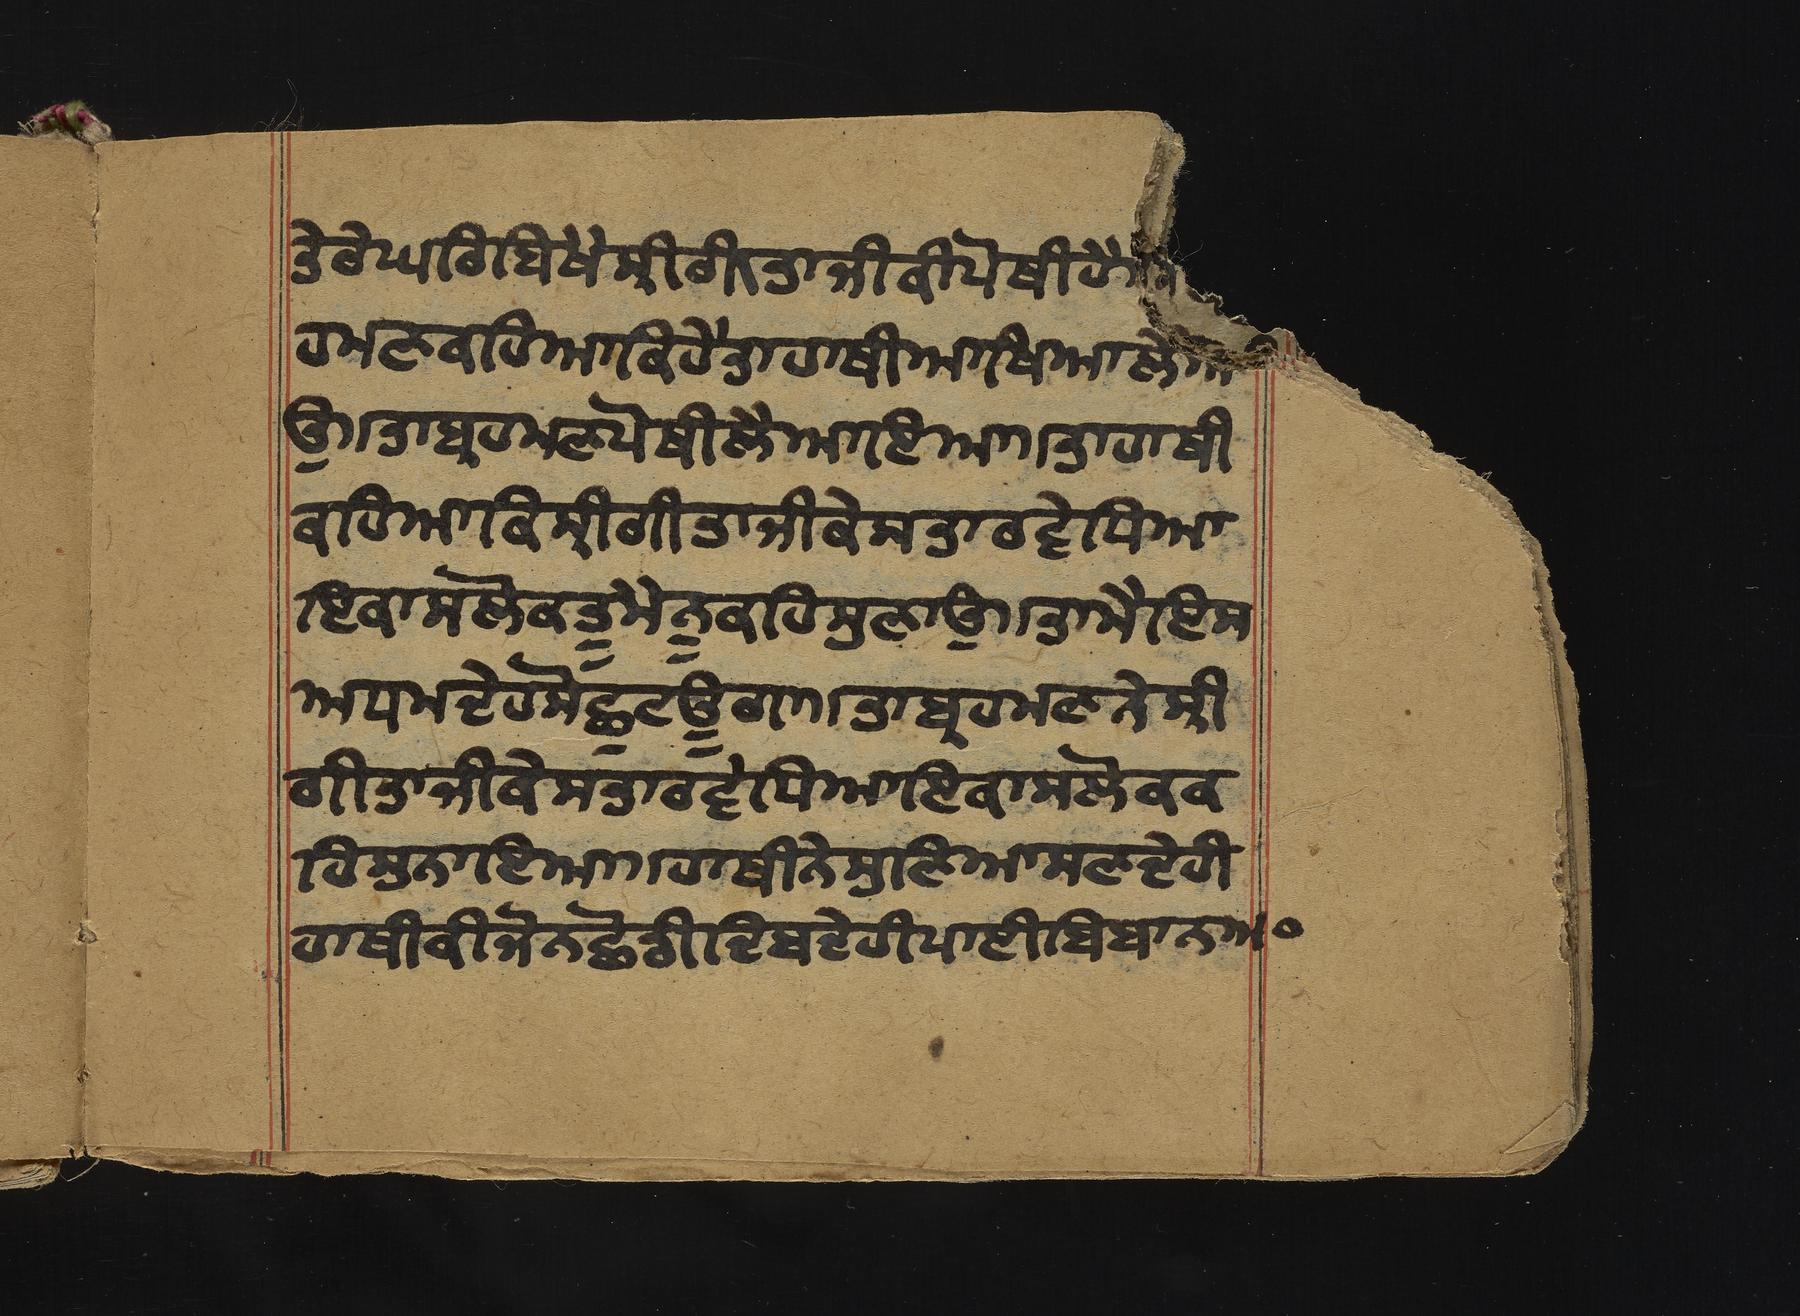 ਤੇਰੇਘਰਿਬਿਖੇਸ੍ਰੀਗੀਤਾਜੀਕੀਪੋਥੀਹੈ
ਹਮਣਕਹਿਆਕਿਹੈਤਾਹਾਥੀਆਖਿਆਲੇ
ਊ।ਤਾਬ੍ਰਹਮਣਪੋਥੀਲੈਆਇਆ।ਤਾਹਾਥੀ
ਕਹਿਆਕਿਸ੍ਰੀਗੀਤਾਜੀਕੇਸਤਾਰਵੇਧਿਆ
ਇਕਾਸਲੋਕਤੂਮੈਨੂਕਹਿਸੁਣਾਊ।ਤਾਮੈਇਸ
ਅਧਮਦੇਹਸੋਛੂਟਊਗਾ।ਤਾਬ੍ਰਹਮਣਨੇਸ੍ਰੀ
ਗੀਤਾਜੀਕੇਸਤਾਰਵੇਧਿਆਇਕਾਸਲੋਕਕ
ਹਿਸੁਨਾਇਆ।ਹਾਥੀਨੇਸੁਣਿਆਸਣਦੇਹੀ
ਹਾਥੀਕੀਜੋਨਛੋਡੀਦਿਬਦੇਹੀਪਾਈਬਿਬਾਨਅ੦